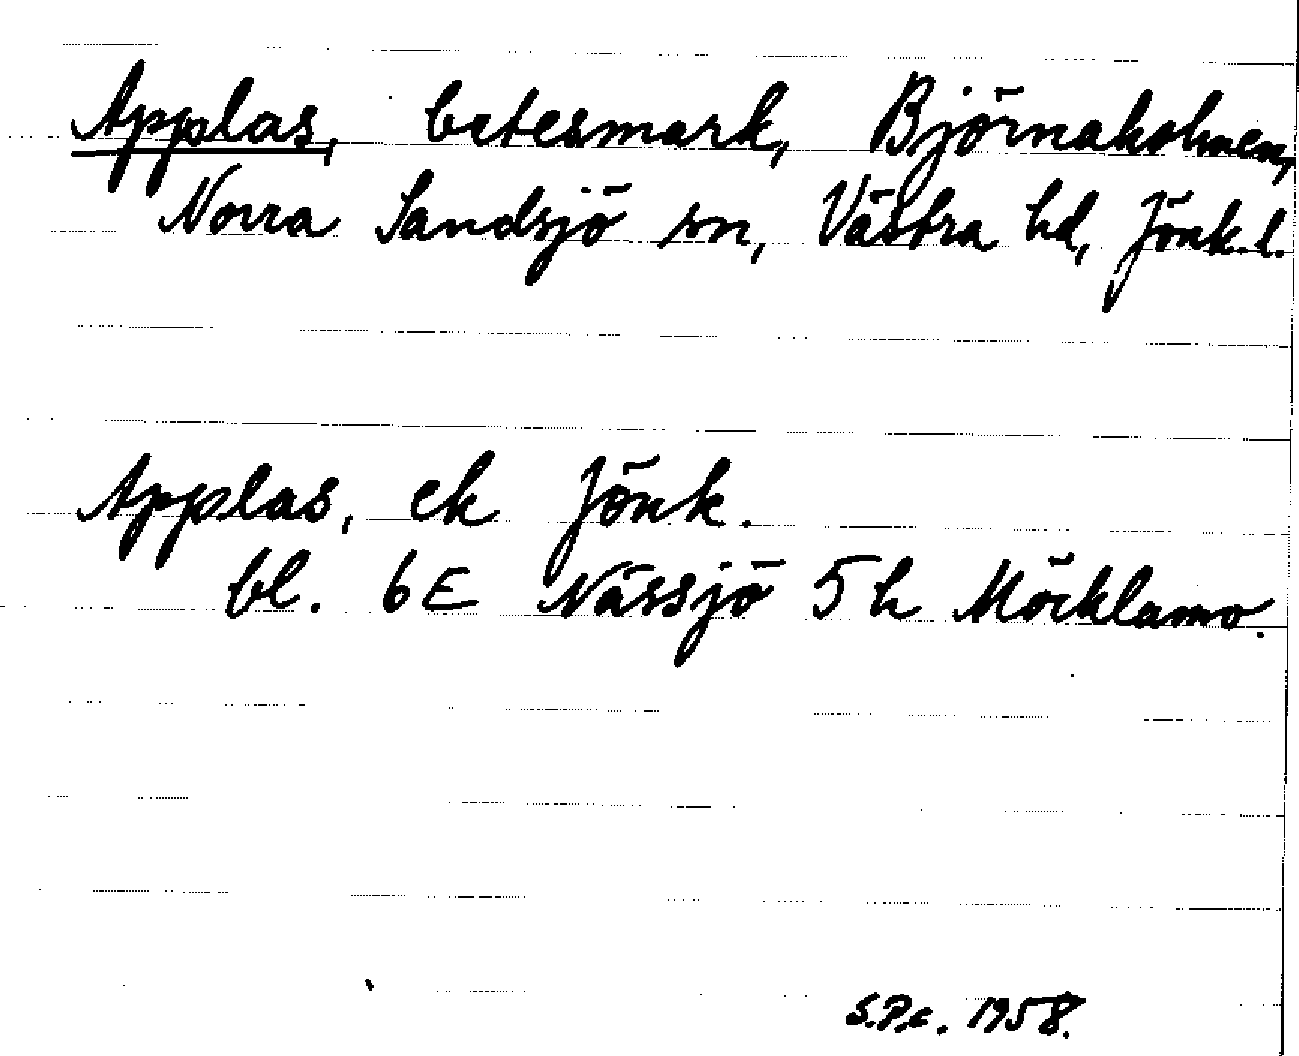 Applas, betesmark, Björnaholmen,
Norra Sandsjö sn, Västra hd, Jönk.l.
Applas, ek Jönk.
bl. 6E Nässjö 5h Möcklamo.
1958.